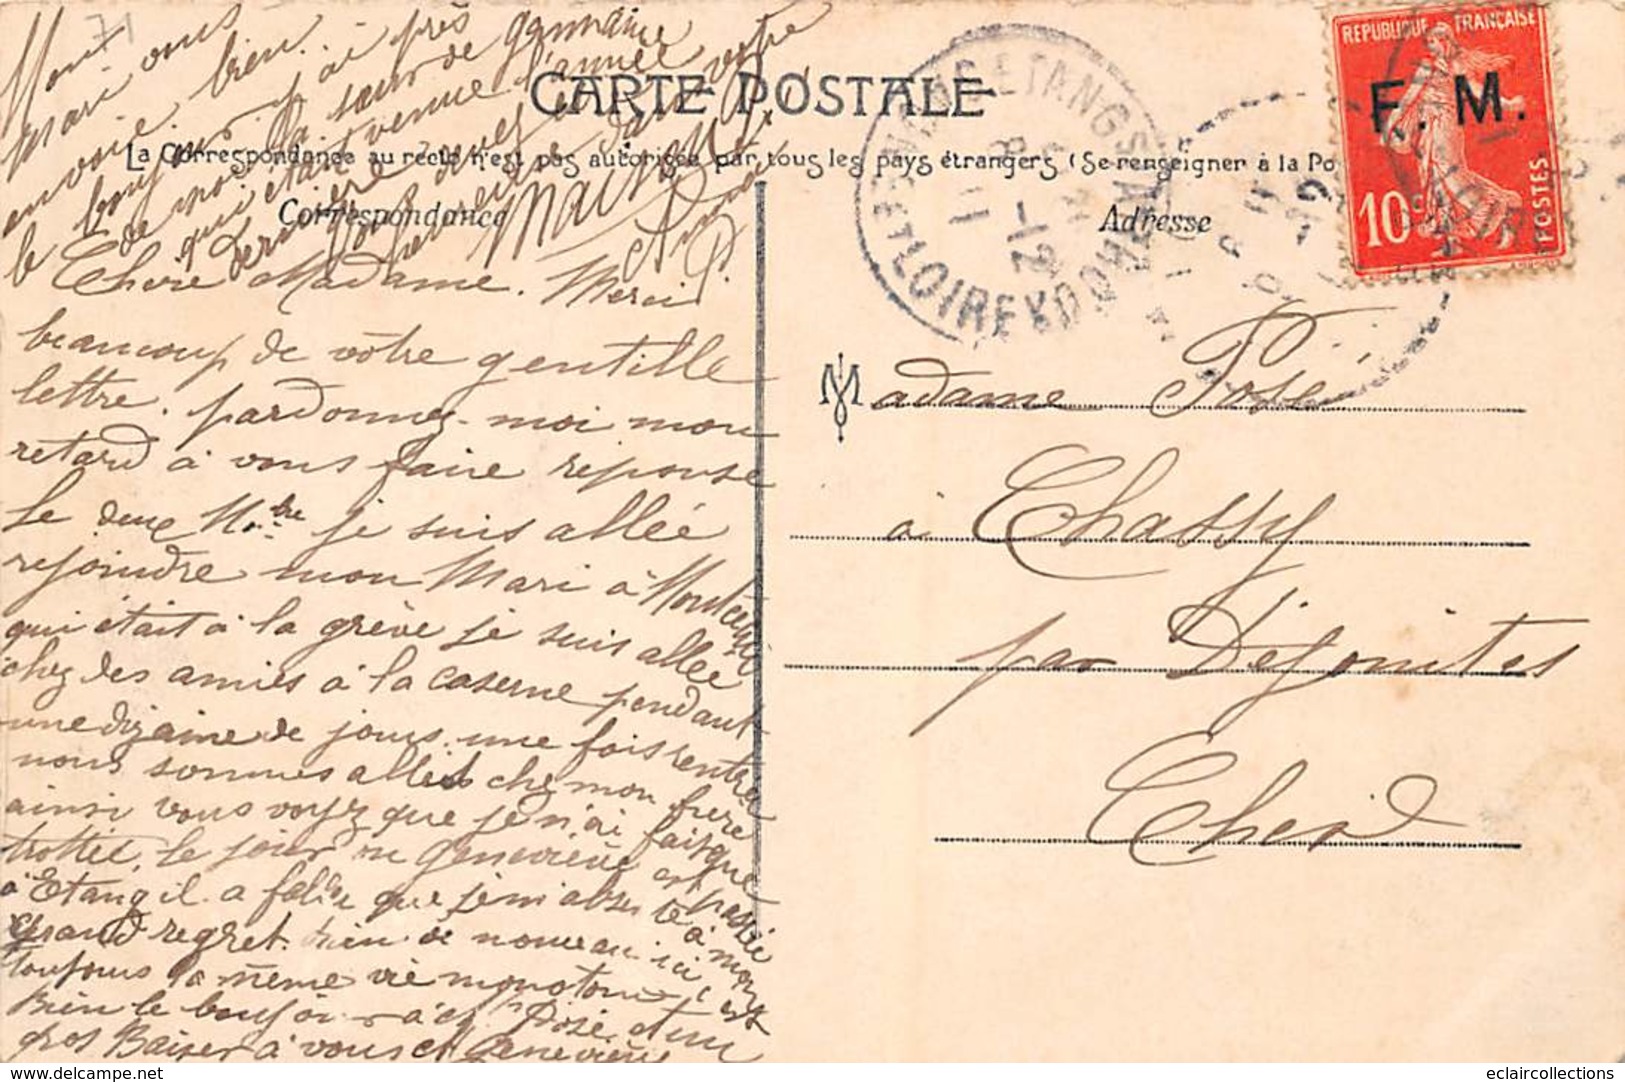 71
Mon
mari vous
envoie bien
le bonjour j'ai près
de moi la sœur de germaine
qui était venue l'année
dernière
votre
CARTE POSTALE
La Correspondance au recto n'est pas autorisée par tous les pays étrangers (Se renseigner à la Po
Correspondance
Adresse
ETANGS/ARROUX
8 -12
11
LOIRE
REPUBLIQUE FRANÇAISE
F. M.
10c
POSTES
Chère Madame. Merci
beaucoup de vôtre gentille
lettre. pardonnez-moi mon
retard à vous faire reponse
le deux 9bre je suis allée
rejoindre mon Mari à Montceau
qui était à la grève je suis allée
chez des amies à la caserne pendant
une dizaine de jours. une fois rentré
nous sommes allés chez mon frère
ainsi vous voyez que je n'ai fais que
trotter. le jour ou Geneviève est passée
à Etang il a fallu que je m'absente à mon
grand regret. rien de nouveau ici, c'est
toujours la même vie monotone
Bien le bonjour à Mr Posé et un
gros Baiser à vous et Geneviève
Madame Posé
à Chassy
par Déjointes
Cher
eclaircollections